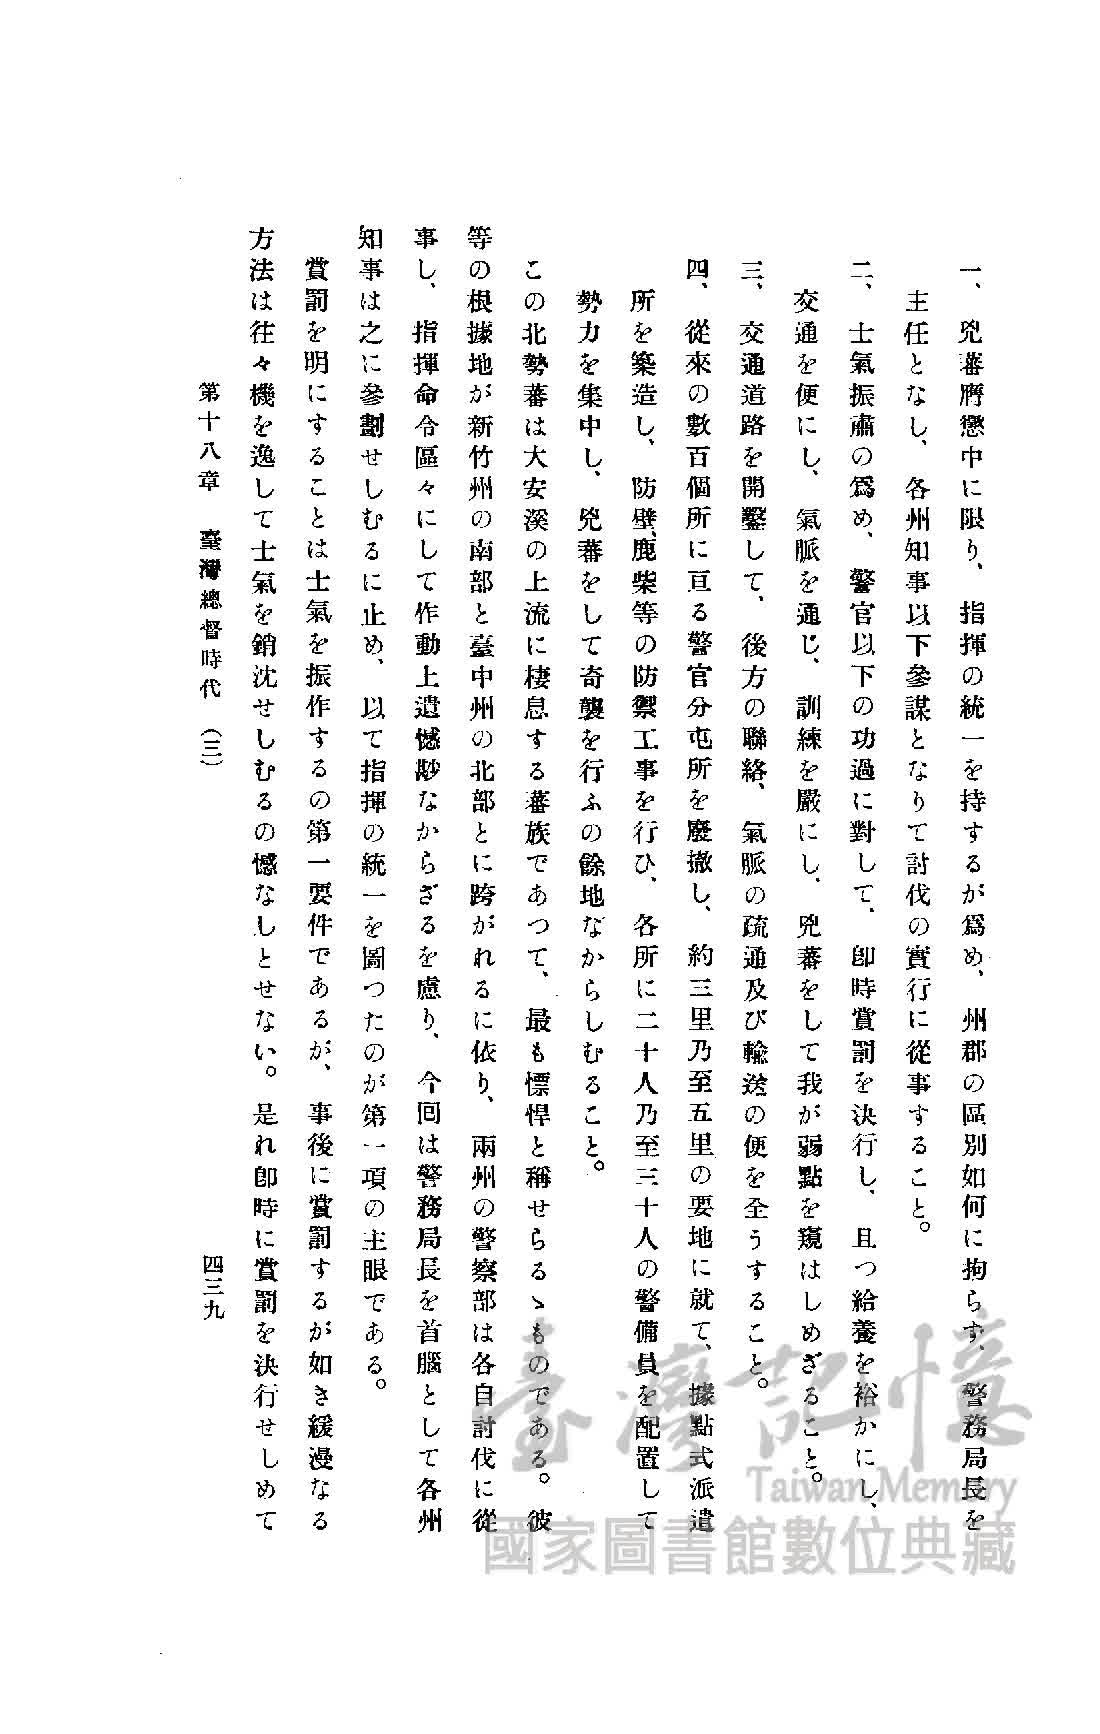 一、兇蕃膺懲中に限り、指揮の統一を持するが爲め、州郡の區別如何に拘らず、警務局長を
主任となし、各州知事以下參謀となりて討伐の實行に從事すること。
二、士氣振肅の爲め、警官以下の功過に對して、卽時賞罰を決行し、且つ給養を裕かにし、
交通を便にし、氣脈を通じ、訓練を嚴にし、兇蕃をして我が弱點を窺はしめざること。
三、交通道路を開鑿して、後方の聯絡、氣脈の疏通及び輸送の便を全うすること。
四、從來の數百個所に亘る警官分屯所を廢撤し、約三里乃至五里の要地に就て、據點式派遣
所を築造し、防壁、鹿柴等の防禦工事を行ひ、各所に二十人乃至三十人の警備員を配置して
勢力を集中し、兇蕃をして奇襲を行ふの餘地なからしむること。
この北勢蕃は大安溪の上流に棲息する蕃族であつて、最も慓悍と稱せらるゝものである。彼
等の根據地が新竹州の南部と臺中州の北部とに跨がれるに依り、兩州の警察部は各自討伐に從
事し、指揮命令區々にして作動上遺憾尠なからざるを慮り、今回は警務局長を首腦として各州
知事は之に參劃せしむるに止め、以て指揮の統一を圖つたのが第一項の主眼である。
賞罰を明にすることは士氣を振作するの第一要件であるが、事後に賞罰するが如き緩漫なる
方法は往々機を逸して士氣を銷沈せしむるの憾なしとせない。是れ卽時に賞罰を決行せしめて
第十八章 臺灣總督時代 (三)
四三九
臺灣記憶
Taiwan Memory
國家圖書館數位典藏